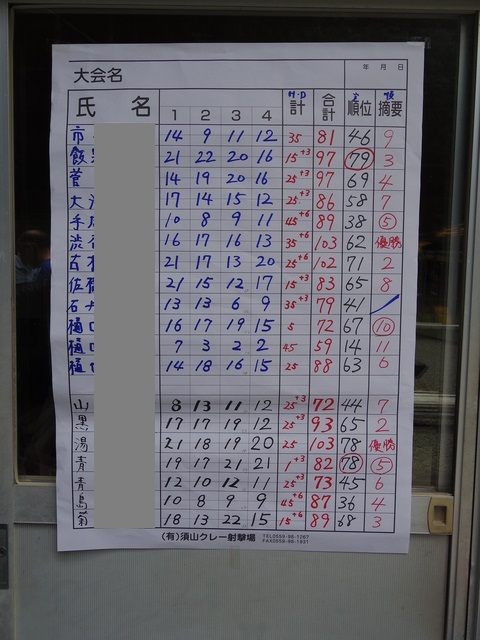 大会名 年 月 日
H・D 後
氏 名 1 2 3 4 計 合計 順位 摘要
市 14 9 11 12 35 81 46 9
飯 21 22 20 16 15+3 97 79 3
菅 14 19 20 16 25+3 97 69 4
大 17 14 15 12 25+3 86 58 7
手 10 8 9 11 45+6 89 38 5
渋 16 17 16 13 35+6 103 62 優勝
古 21 17 13 20 25+6 102 71 2
佐 21 15 12 17 15+3 83 65 8
石 13 13 6 9 35+3 79 41
樋口 16 17 19 15 5 72 67 10
樋口 7 3 2 2 45 59 14 11
樋口 14 18 16 15 25 88 63 6
山 8 13 11 12 25+3 72 44 7
黒 17 17 19 12 25+3 93 65 2
湯 21 18 19 20 25 103 78 優勝
青 19 17 21 21 1+3 82 78 5
青 12 10 12 11 25+3 73 45 6
島 10 8 9 9 45+6 87 36 4
菊 18 13 22 15 15+6 89 68 3
(有)須山クレー射撃場 TEL0559-98-1267
FAX0559-98-1931